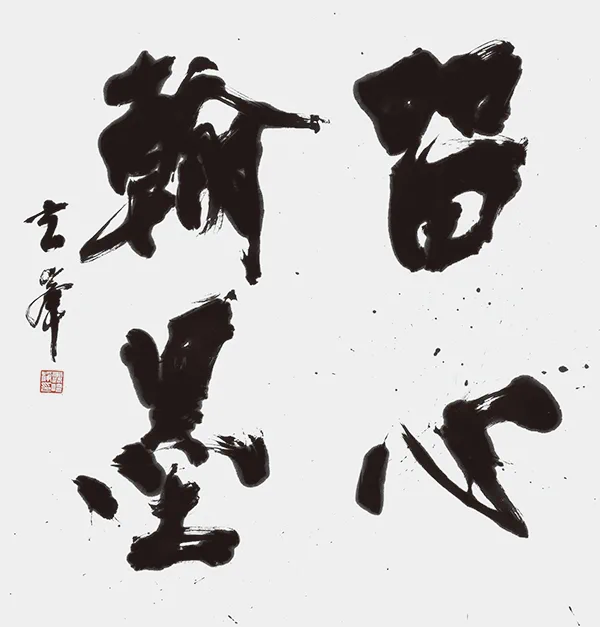 留心
翰墨
玄峯